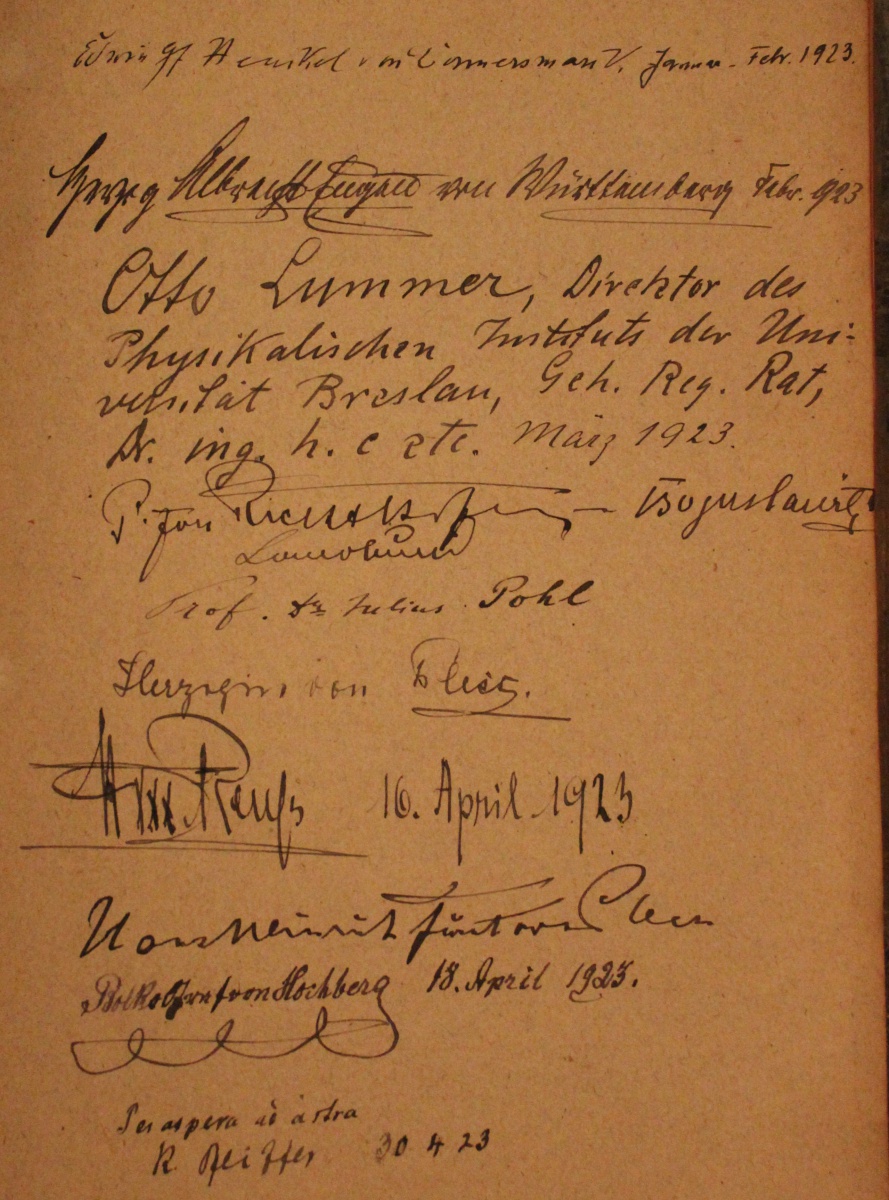 Edwin Gf Henckel von Donnersmarck, Januar - Febr. 1923.
Georg Albrecht Eugen von Württemberg Febr. 923
Otto Lummer, Direktor des
Physikalischen Instituts der Uni-
versität Breslau, Geh. Reg. Rat,
Dr. ing. h. c etc. März 1923.
von Richthofen - Boguslawitz
Prof. Dr Julius Pohl
Herzogin von Pless.
Reuß 16. April 1923
Hans Heinrich Fürst von Pless
Bolko Graf von Hochberg 18. April 1923.
Per aspera ad astra
R. Pfeiffer 30 4 23